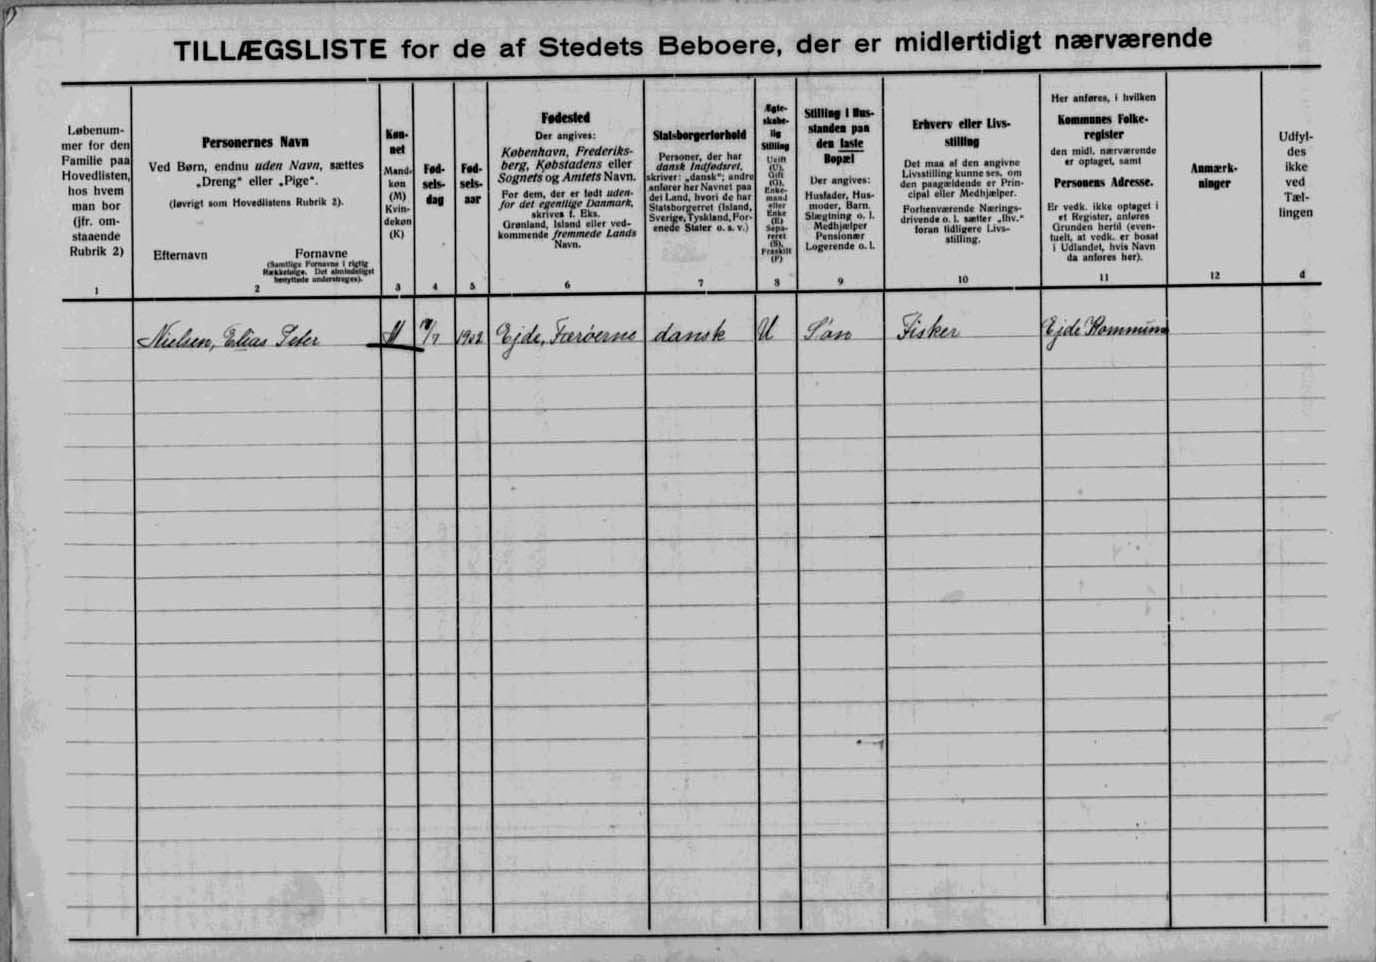 TILLÆGSLISTE for de af Stedets Beboere, der er midlertidigt nærværende
Løbenum-
mer for den
Familie paa
Hovedlisten,
hos hvem
man bor
(jfr. om-
staaende
Rubrik 2)
1
Personernes Navn
Ved Børn, endnu uden Navn, sættes
„Dreng“ eller „Pige“.
(Iøvrigt som Hovedlistens Rubrik 2).
Efternavn Fornavne
(Samtlige Fornavne i rigtig
Rækkefølge. Det almindeligst
benyttede understreges).
2
Køn-
net
Mand-
køn
(M)
Kvin-
dekøn
(K)
3
Fød-
sels-
dag
4
Fød-
sels-
aar
5
Fødested
Der angives:
København, Frederiks-
berg, Købstadens eller
Sognets og Amtets Navn.
For dem, der er født uden-
for det egentlige Danmark,
skrives f. Eks.
Grønland, Island eller ved-
kommende fremmede Lands
Navn.
6
Statsborgerforhold
Personer, der har
dansk Indfødsret,
skriver: „dansk“; andre
anfører her Navnet paa
det Land, hvori de har
Statsborgerret (Island,
Sverige, Tyskland, For-
enede Stater o. s. v.)
7
Ægte-
skabe-
lig
Stilling
Ugift
(U),
Gift
(G),
Enke-
mand
eller
Enke
(E)
Sepa-
reret
(S),
Fraskilt
(F)
8
Stilling i Hus-
standen paa
den faste
Bopæl
Der angives:
Husfader, Hus-
moder, Barn,
Slægtning o. l.
Medhjælper
Pensionær
Logerende o. l.
9
Erhverv eller Livs-
stilling
Det maa af den angivne
Livsstilling kunne ses, om
den paagældende er Prin-
cipal eller Medhjælper.
Forhenværende Nærings-
drivende o. l. sætter „fhv.“
foran tidligere Livs-
stilling.
10
Her anføres, i hvilken
Kommunes Folke-
register
den midl. nærværende
er optaget, samt
Personens Adresse.
Er vedk. ikke optaget i
et Register, anføres
Grunden hertil (even-
tuelt, at vedk. er bosat
i Udlandet, hvis Navn
da anføres her).
11
Anmærk-
ninger
12
Udfyl-
des
ikke
ved
Tæl-
lingen
d
Nielsen, Elias Peter M /7 1902 Ejde, Færøerne dansk U Søn Fisker Ejde Kommune